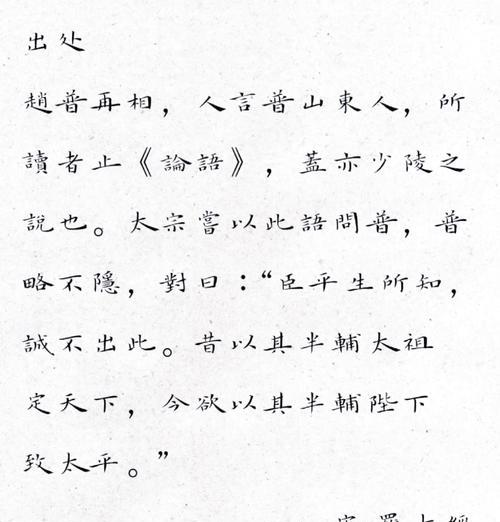 出处
趙普再相，人言普山東人，所
讀者止《論語》，蓋亦少陵之
說也。太宗嘗以此語問普，普
略不隱，對曰：“臣平生所知，
誠不出此。昔以其半輔太祖
定天下，今欲以其半輔陛下
致太平。”